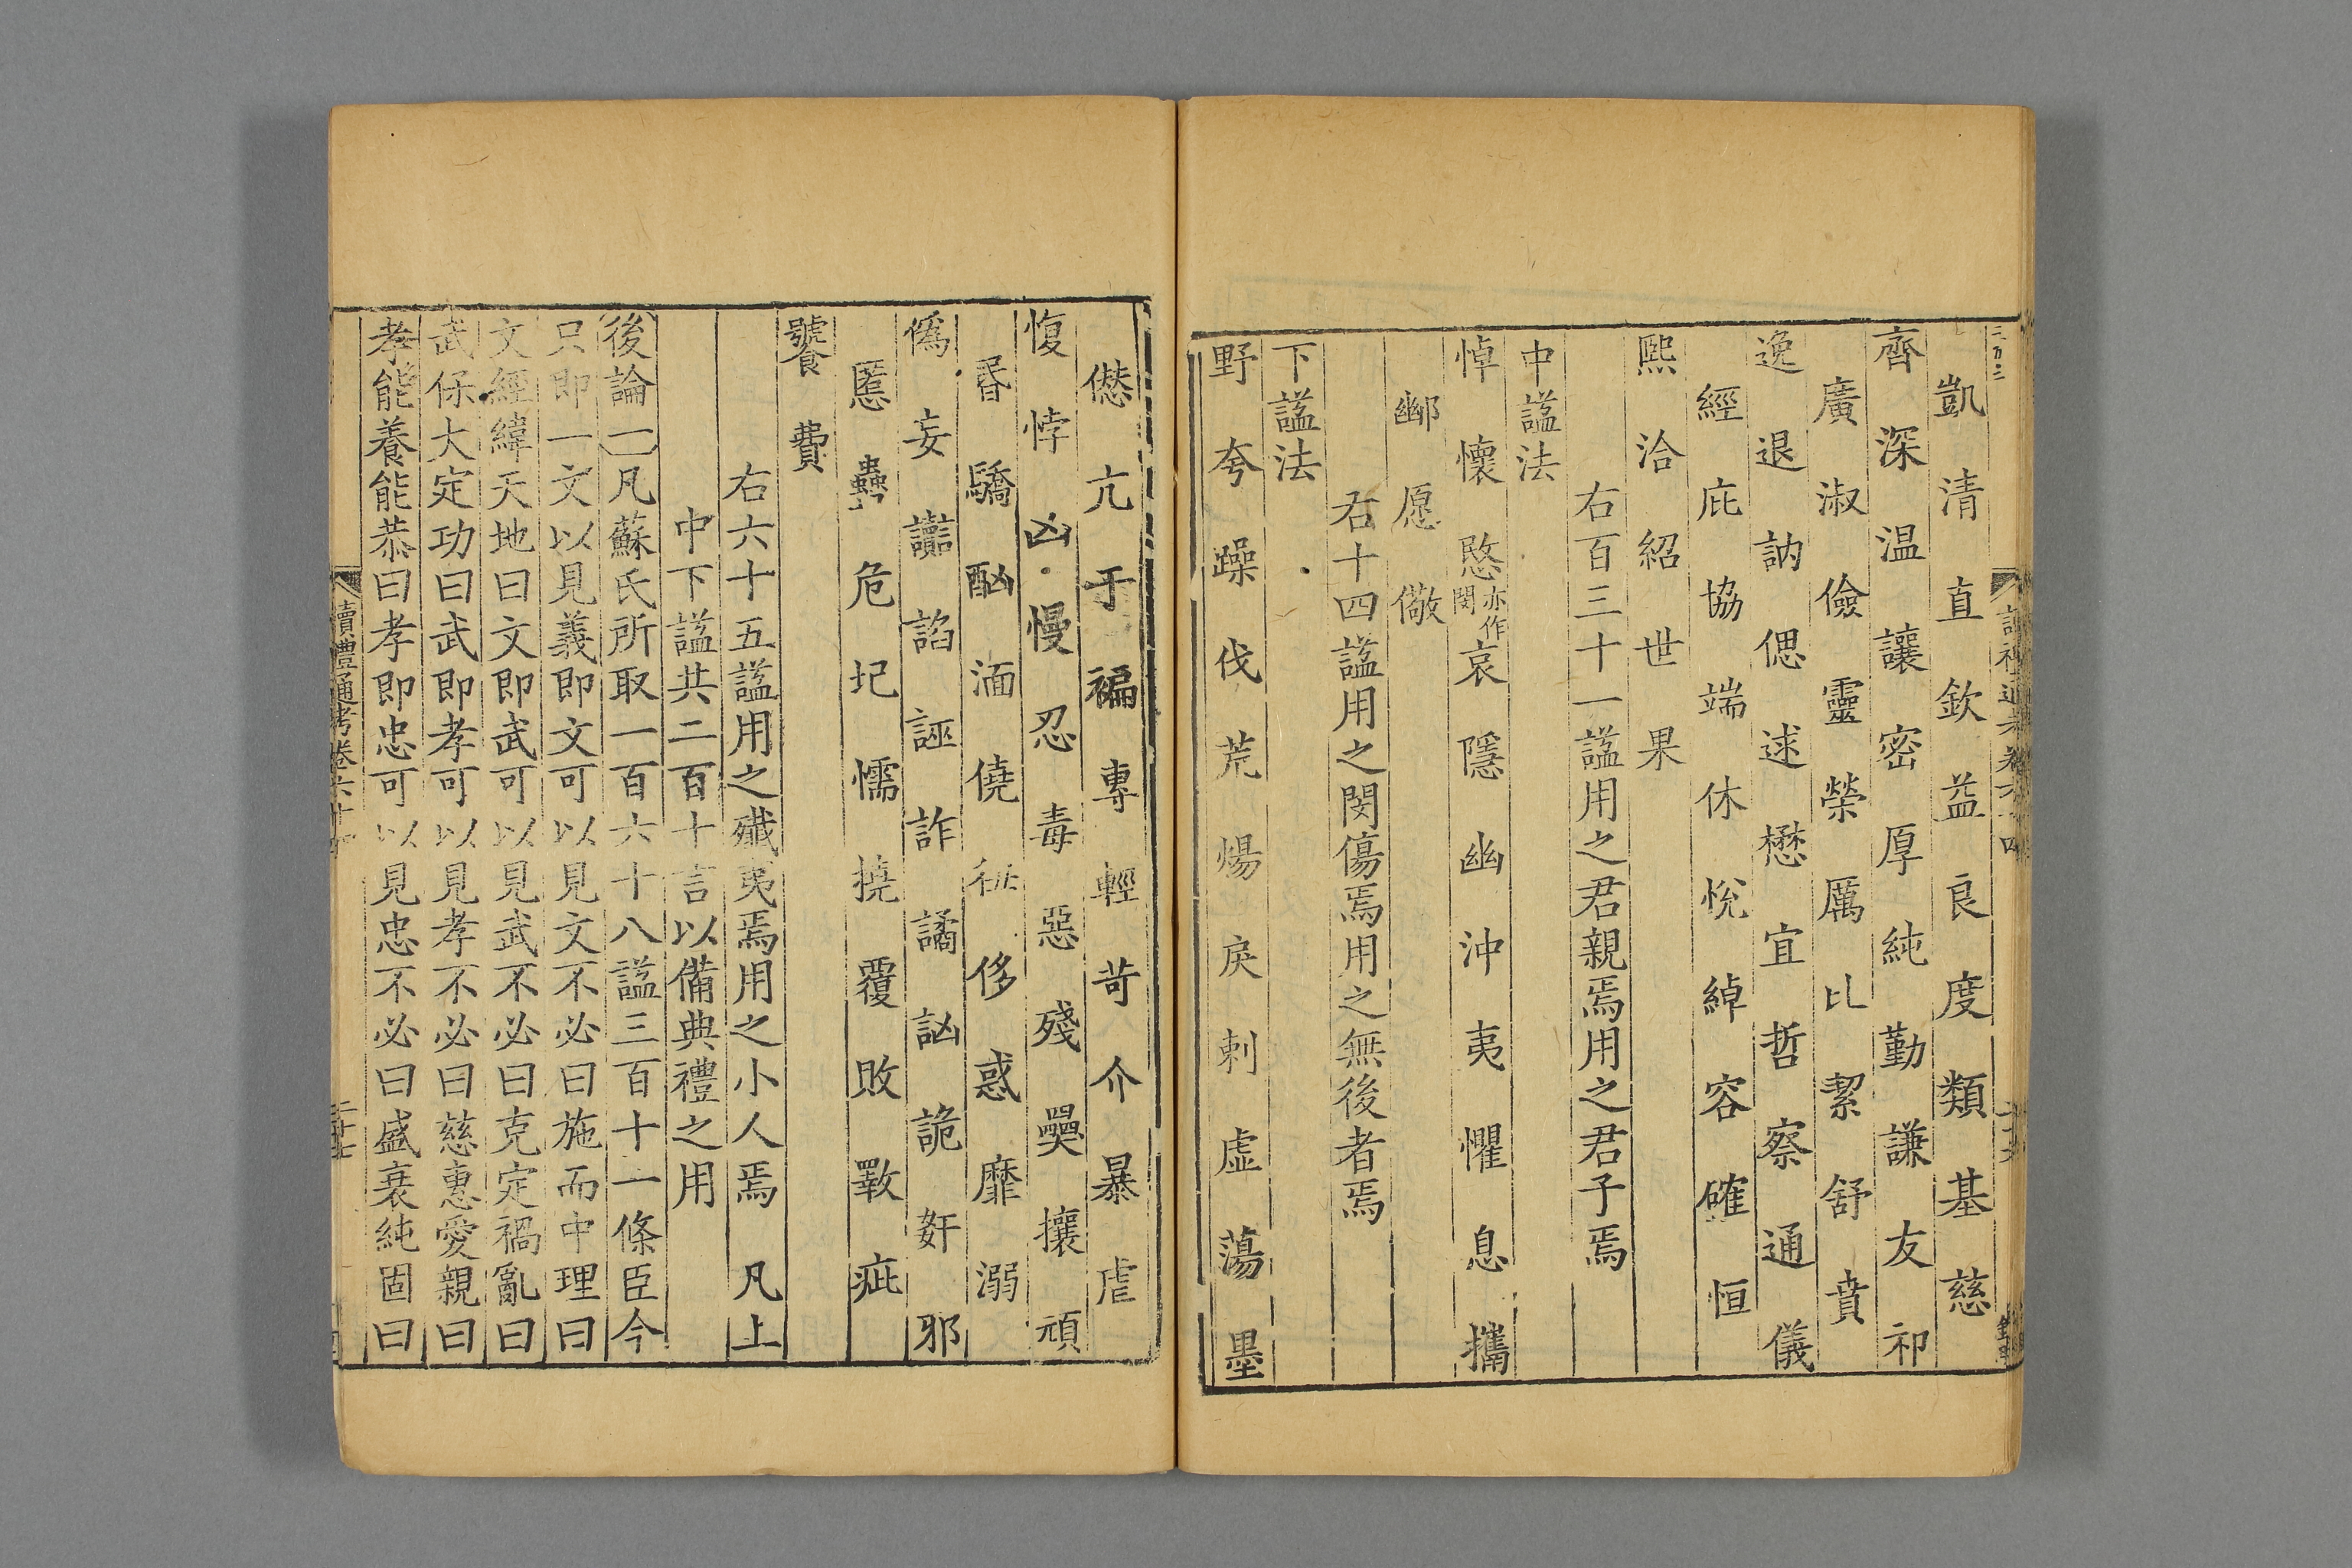 凱清直欽益良度類基慈
齊深温讓密厚純勤謙友祁
廣淑儉靈榮厲比絜舒賁
逸退訥偲逑懋宜哲察通儀
經庇協端休悅綽容確恒
熙洽紹世果
右百三十一謚用之君親焉用之君子焉
中謚法
悼懷愍亦作閔哀隱幽沖夷懼息攜
鄽愿儆
右十四謚用之閔傷焉用之無後者焉
下謚法
野夸躁伐荒煬戾剌虛蕩墨
僣亢干褊專輕苛介暴虐
愎悖凶慢忍毒惡殘奰攘頑
昏驕酗湎僥侈惑靡溺
偽妄讟諂誣詐譎訩詭姧邪
慝蠱危圮懦撓覆敗斁疵
饕費
右六十五謚用之殲夷焉用之小人焉 凡上
中下謚共二百十言以備典禮之用
後論一凡蘇氏所取一百六十八謚三百十一條臣今
只即一文以見義即文可以見文不必曰施而中理曰
文經緯天地曰文即武可以見武不必曰克定禍亂曰
武保大定功曰武即孝可以見孝不必曰慈惠愛親曰
孝能養能恭曰孝即忠可以見忠不必曰盛衰純固曰
讀禮通考卷六十
二十七